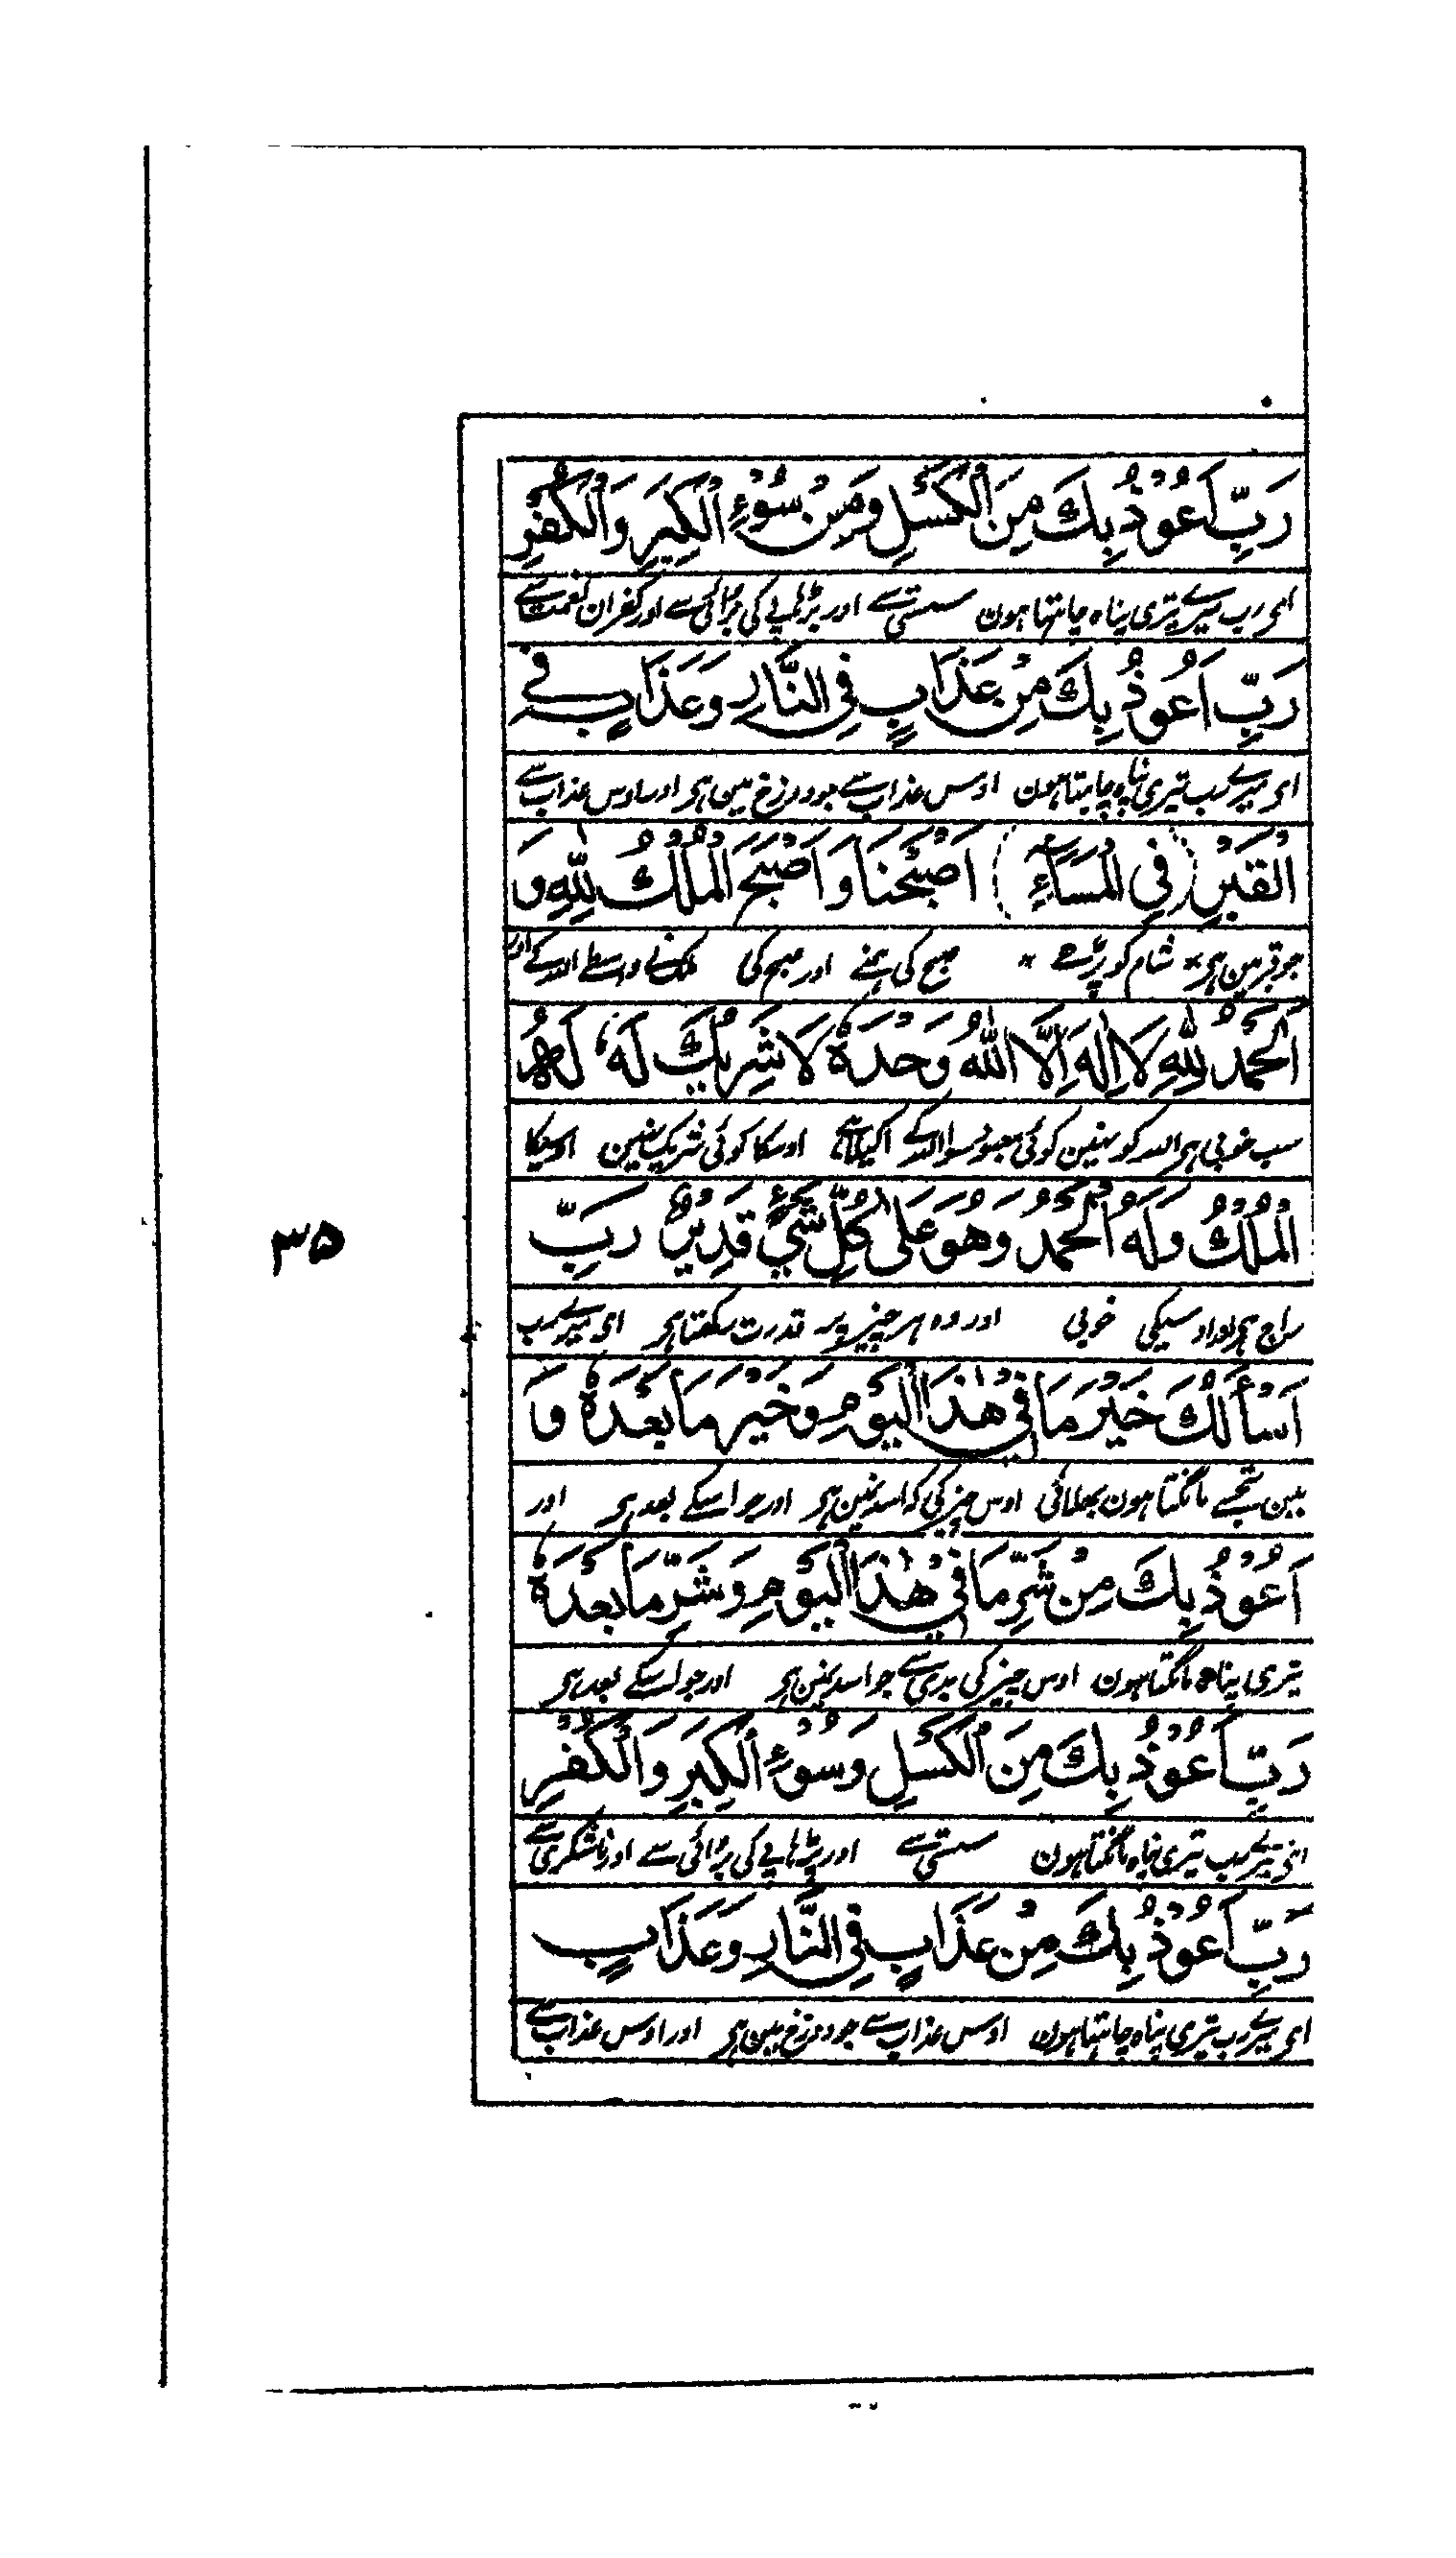 رَبِّ اَعُوْذُ بِكَ مِنَ الْكَسَلِ وَمِنْ سُوْءِ الْكِبَرِ وَالْكُفْرِ
ای رب میرے تیری پناہ چاہتا ہون سستی سے اور بڑھاپے کی بڑائی سے اور کفران نعمت سے
رَبِّ اَعُوْذُ بِكَ مِنْ عَذَابٍ فِي النَّارِ وَعَذَابٍ فِي
ای میرے رب تیری پناہ چاہتا ہون اوس عذاب سے جو دوزخ مین ہی اور اوس عذاب سے
الْقَبْرِ (فِي الْمَسَآءِ) اَصْبَحْنَا وَاَصْبَحَ الْمُلْكُ لِلّٰهِ وَ
جو قبر مین ہی * شام کو پڑھے * صبح کی ہمنے اور صبح کی ملک نے واسطے اللہ کے اور
الْحَمْدُ لِلّٰهِ لَا اِلٰهَ اِلَّا اللّٰهُ وَحْدَهٗ لَا شَرِيْكَ لَهٗ لَهُ
سب خوبی ہی اللہ کو نہین کوئی معبود سوا اللہ کے اکیلا ہے اوسکا کوئی شریک نہین اوسیکا
الْمُلْكُ وَلَهُ الْحَمْدُ وَهُوَ عَلٰى كُلِّ شَيْءٍ قَدِيْرٌ رَبِّ
راج ہی اور اوسیکی خوبی اور وہ ہر چیز پر قدرت رکھتا ہی ای میرے رب
اَسْأَلُكَ خَيْرَ مَا فِي هٰذَا الْيَوْمِ وَخَيْرَ مَا بَعْدَهٗ وَ
مین تجھسے مانگتا ہون بھلائی اوس چیز کی کہ اسدن مین ہی اور جو اسکے بعد ہی اور
اَعُوْذُ بِكَ مِنْ شَرِّ مَا فِي هٰذَا الْيَوْمِ وَشَرِّ مَا بَعْدَهٗ
تیری پناہ مانگتا ہون اوس چیز کی بدی سے جو اسدن مین ہی اور جو اسکے بعد ہی
رَبِّ اَعُوْذُ بِكَ مِنَ الْكَسَلِ وَسُوْءِ الْكِبَرِ وَالْكُفْرِ
ای میرے رب تیری پناہ مانگتا ہون سستی سے اور بڑھاپے کی بڑائی سے اور ناشکری سے
رَبِّ اَعُوْذُ بِكَ مِنْ عَذَابٍ فِي النَّارِ وَعَذَابٍ
ای میرے رب تیری پناہ چاہتا ہون اوس عذاب سے جو دوزخ مین ہی اور اوس عذاب سے
۳۵